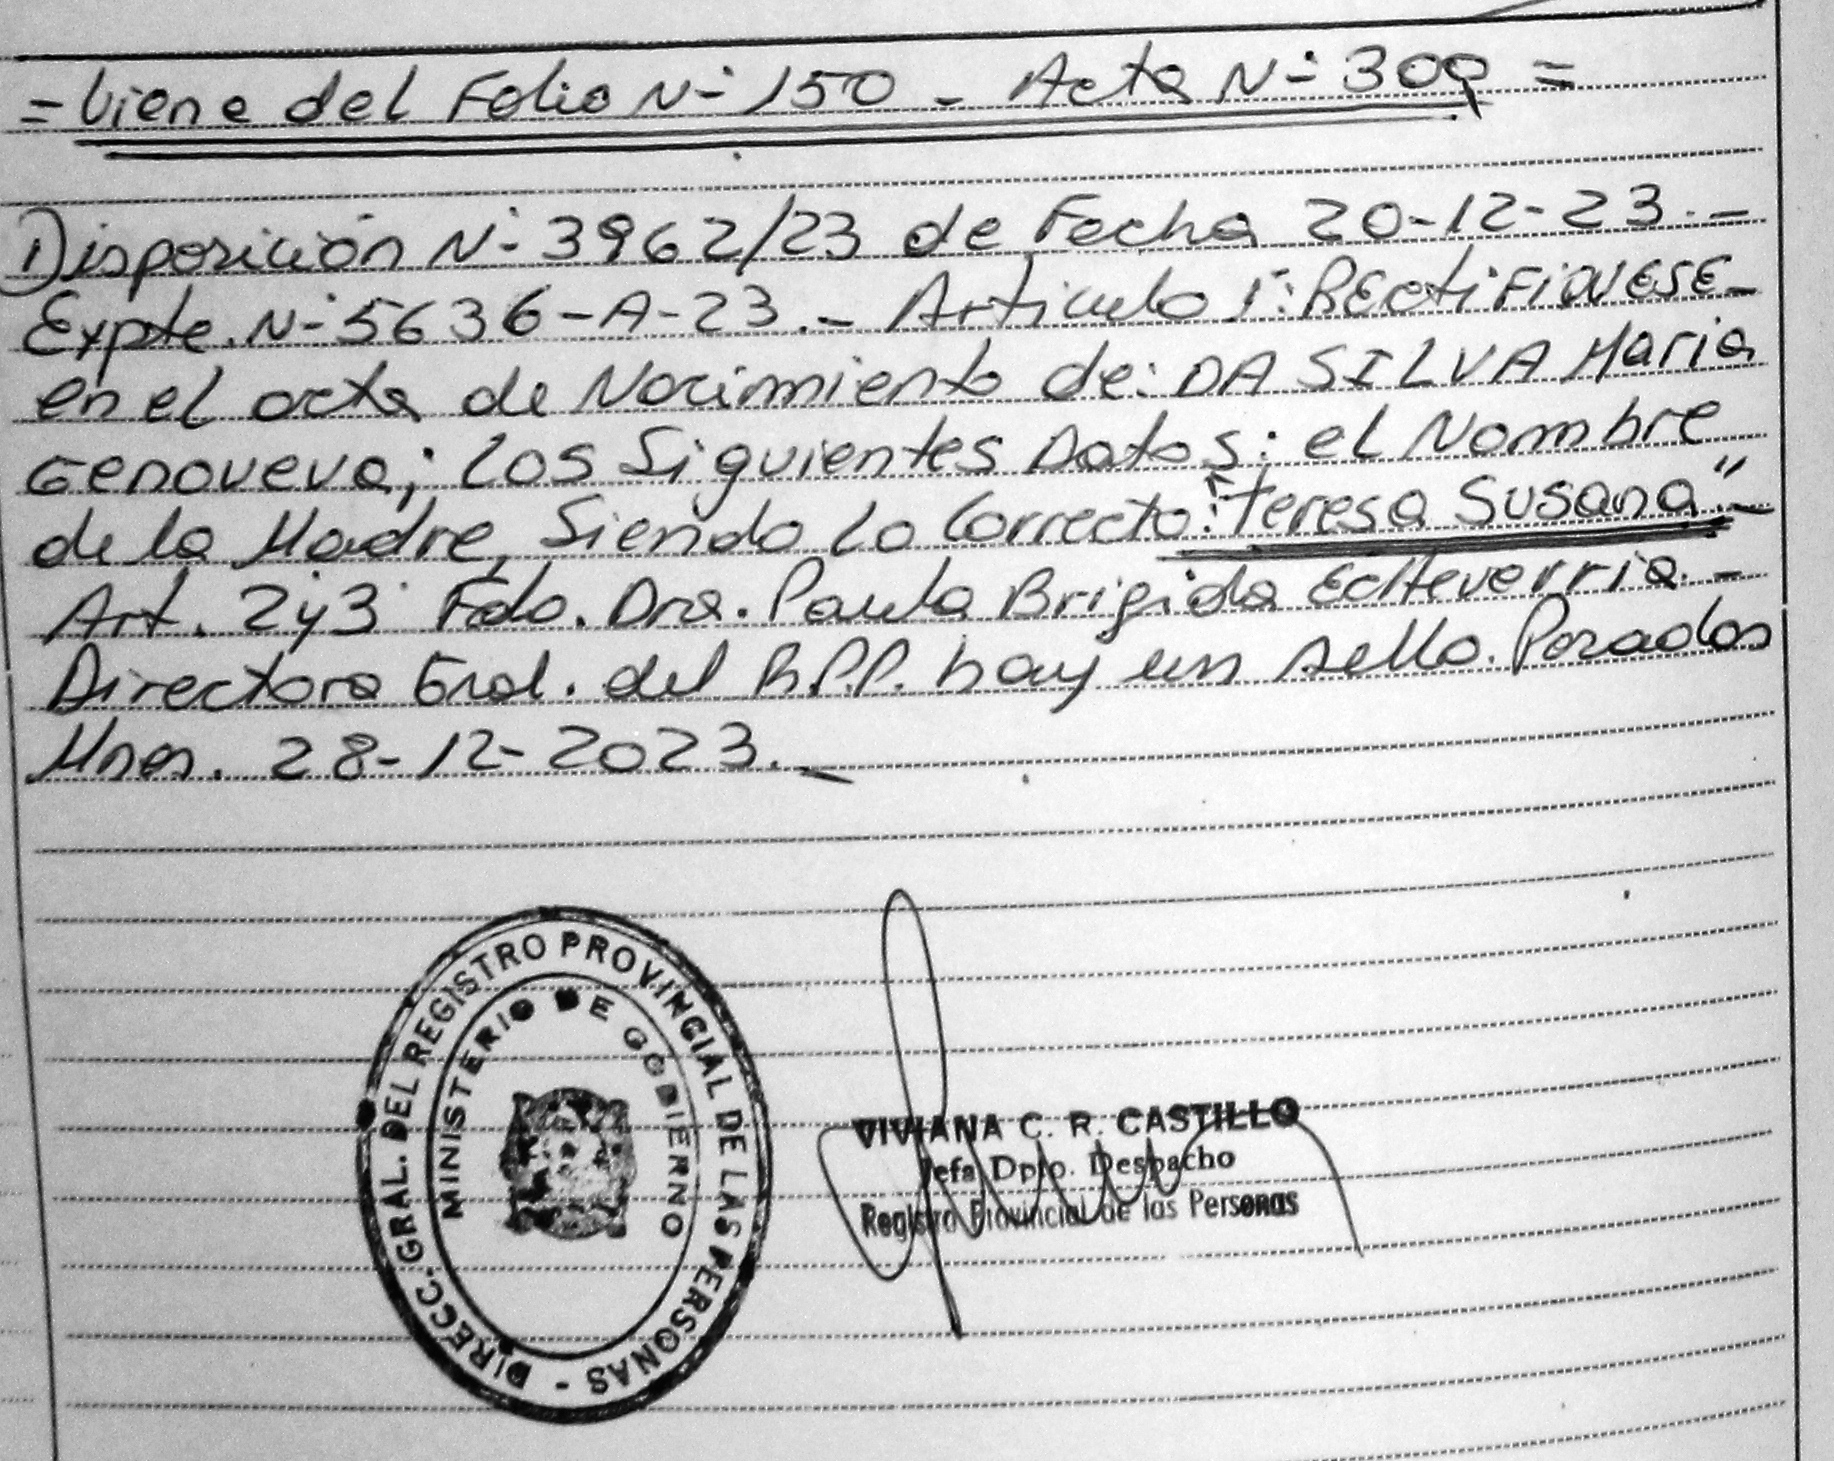 = Viene del Folio N- 150 - Acta N- 309 =
Disposición N- 3962/23 de Fecha 20-12-23.-
Expte. N- 5636-A-23.- Articulo 1°: RECtiFiQUESE-
en el acta de Nacimiento de: DA SILVA Maria
Genoveva; los Siguientes Datos: el Nombre
de la Madre, Siendo lo Correcto: "Teresa Susana"-
Art. 2y3 Fdo. Dra. Paula Brigida Echeverria.-
Directora Gral. del R.P.P. hay un sello. Posadas
Mnes. 28-12-2023.-
DIRECC. GRAL. DEL REGISTRO PROVINCIAL DE LAS PERSONAS -
MINISTERIO DE GOBIERNO
VIVIANA C. R. CASTILLO
Jefa Dpto. Despacho
Registro Provincial de las Personas